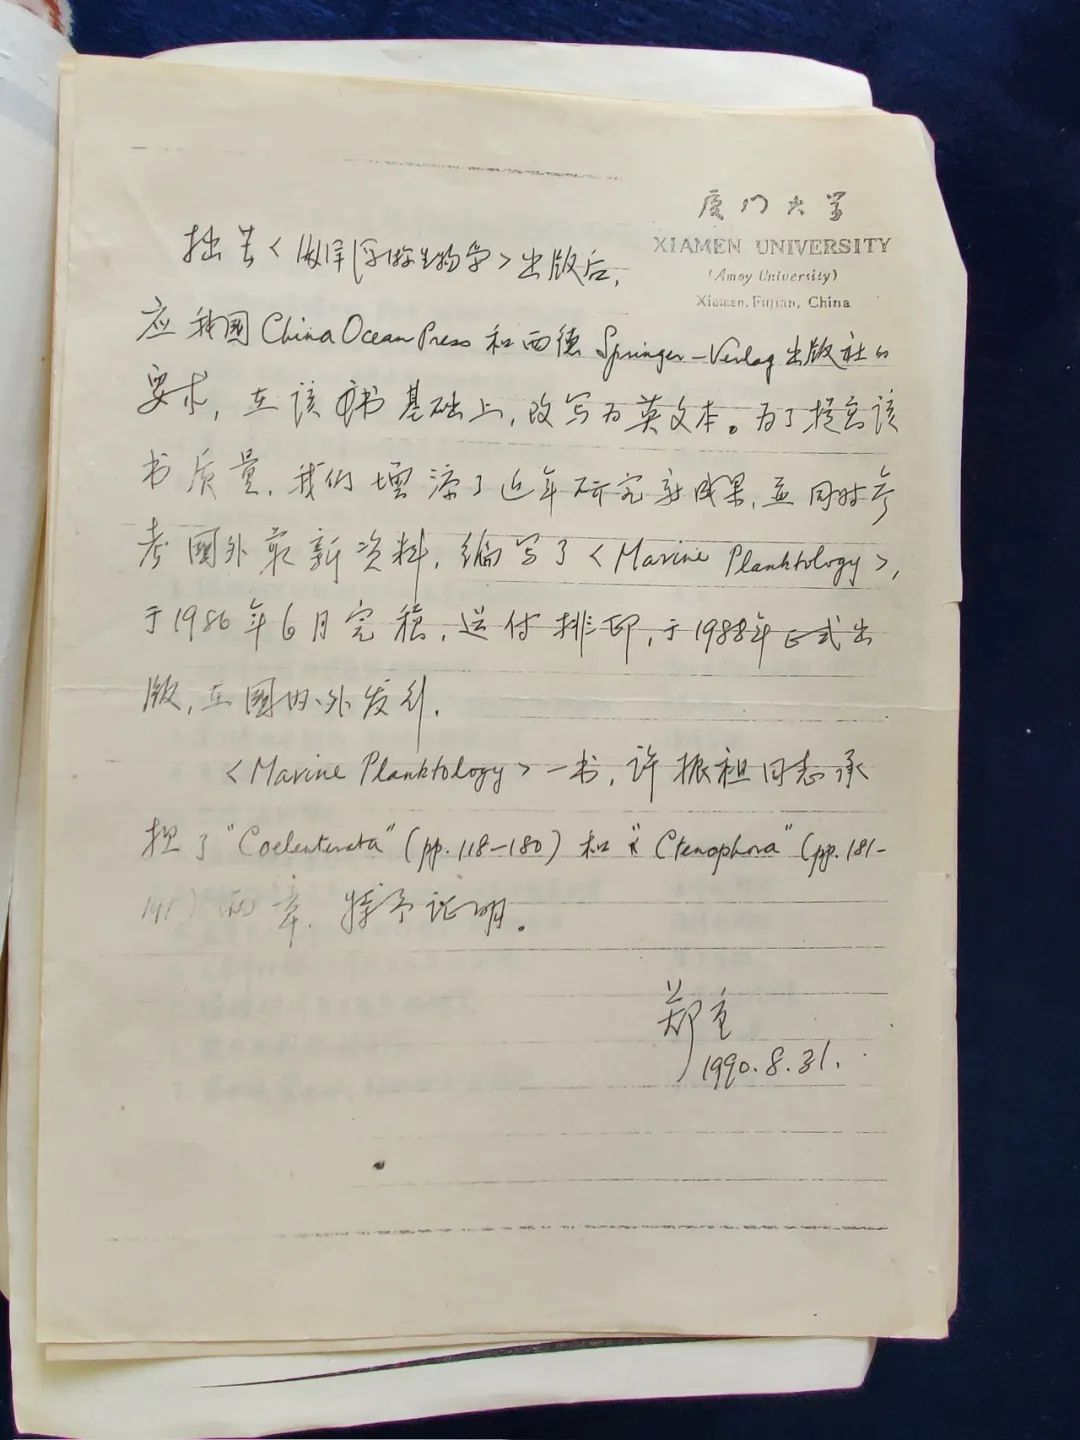 厦门大学
XIAMEN UNIVERSITY
(Amoy University)
Xiamen, Fujian, China
拙着〈海洋浮游生物学〉出版后,
应我国China Ocean Press和西德Springer-Verlag出版社的
要求,在该书基础上,改写为英文本。为了提高该
书质量,我们增添了近年研究新成果,并同时参
考国外最新资料,编写了〈Marine Planktology〉,
于1986年6月完稿,送付排印,于1988年正式出
版,在国内外发行.
〈Marine Planktology〉一书,许振祖同志承
担了"Coelenterata"(pp.118-180)和"Ctenophora"(pp.181-
)两章.特予证明。
郑重
1990.8.31.